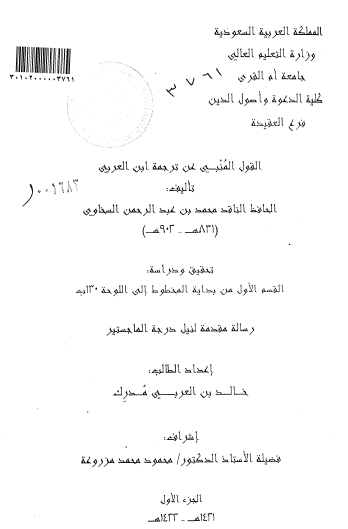 المملكة العربية السعودية
وزارة التعليم العالي
جامعة أم القرى
كلية الدعوة وأصول الدين
فرع العقيدة
٣٠١٠٢٠٠٠٠٠٣٧٦١
٣٧٦١
القول المُنْبي عن ترجمة ابن العربي
تأليف:
٠٠١٦٨٣
الحافظ الناقد محمد بن عبد الرحمن السخاوي
(٨٣١هـ - ٩٠٢هـ)
تحقيق ودراسة:
القسم الأول من بداية المخطوط إلى اللوحة ١٣٠ب
رسالة مقدمة لنيل درجة الماجستير
إعداد الطالب:
خالد بن العربي مُدرك
إشراف:
فضيلة الأستاذ الدكتور/ محمود محمد مزروعة
الجزء الأول
١٤٢١هـ - ١٤٢٢هـ